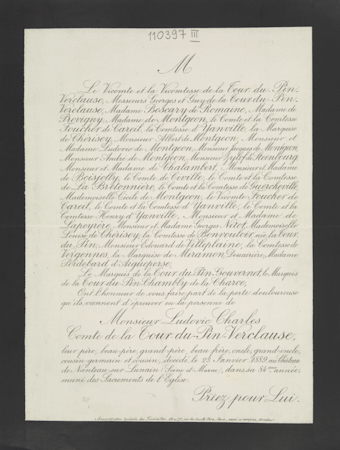 110397 III
M
Le Vicomte et la Vicomtesse de la Tour du Pin
Verclause, Messieurs Georges et Guy de la Tour du Pin
Verclause, Madame Boscary de Romaine, Madame de
Madame de Montgeon, le Comte et la Comtesse
Foucher de Careil, la Comtesse d'Yanville, la Marquise
de Thérisey, Monsieur Albert de Montgeon, Monsieur et
Madame Ludovic de Montgeon, Monsieur Jacques de Montgeon,
Monsieur André de Montgeon, Monsieur
Monsieur et Madame de Chalambert, Monsieur et Madame
de le Comte de le Comte et la Comtesse
de La Bretonnière, le Comte et la Comtesse de
Mademoiselle de Montgeon, le Vicomte Foucher de
Careil, le Comte et la Comtesse d'Yanville, le Comte et la
Comtesse Henry d'Yanville, Monsieur et Madame de
Lapeyrère, Monsieur et Madame Georges Nitot, Mademoiselle
de Thérisey, la Comtesse de née la Tour
du Pin, Monsieur Edouard de Villeplaine, la Comtesse de
Vergennes, la Marquise de Miramon Douairière, Madame
d'Aigueperse,
Le Marquis de la Tour du Pin Gouvernet, le Marquis
de la Tour du Pin Chambly de la Charce,
Ont l'honneur de vous faire part de la perte douloureuse
qu'ils viennent d'éprouver en la personne de
Monsieur Ludovic Charles
Comte de la Tour du Pin Verclause,
leur père, beau-père, grand-père, beau-frère, oncle, grand-oncle,
cousin germain et cousin, décédé le Janvier au Château
de Nanteau-sur-Lunain (Seine et Marne), dans sa année,
muni des Sacrements de l'Eglise.
Priez pour Lui.